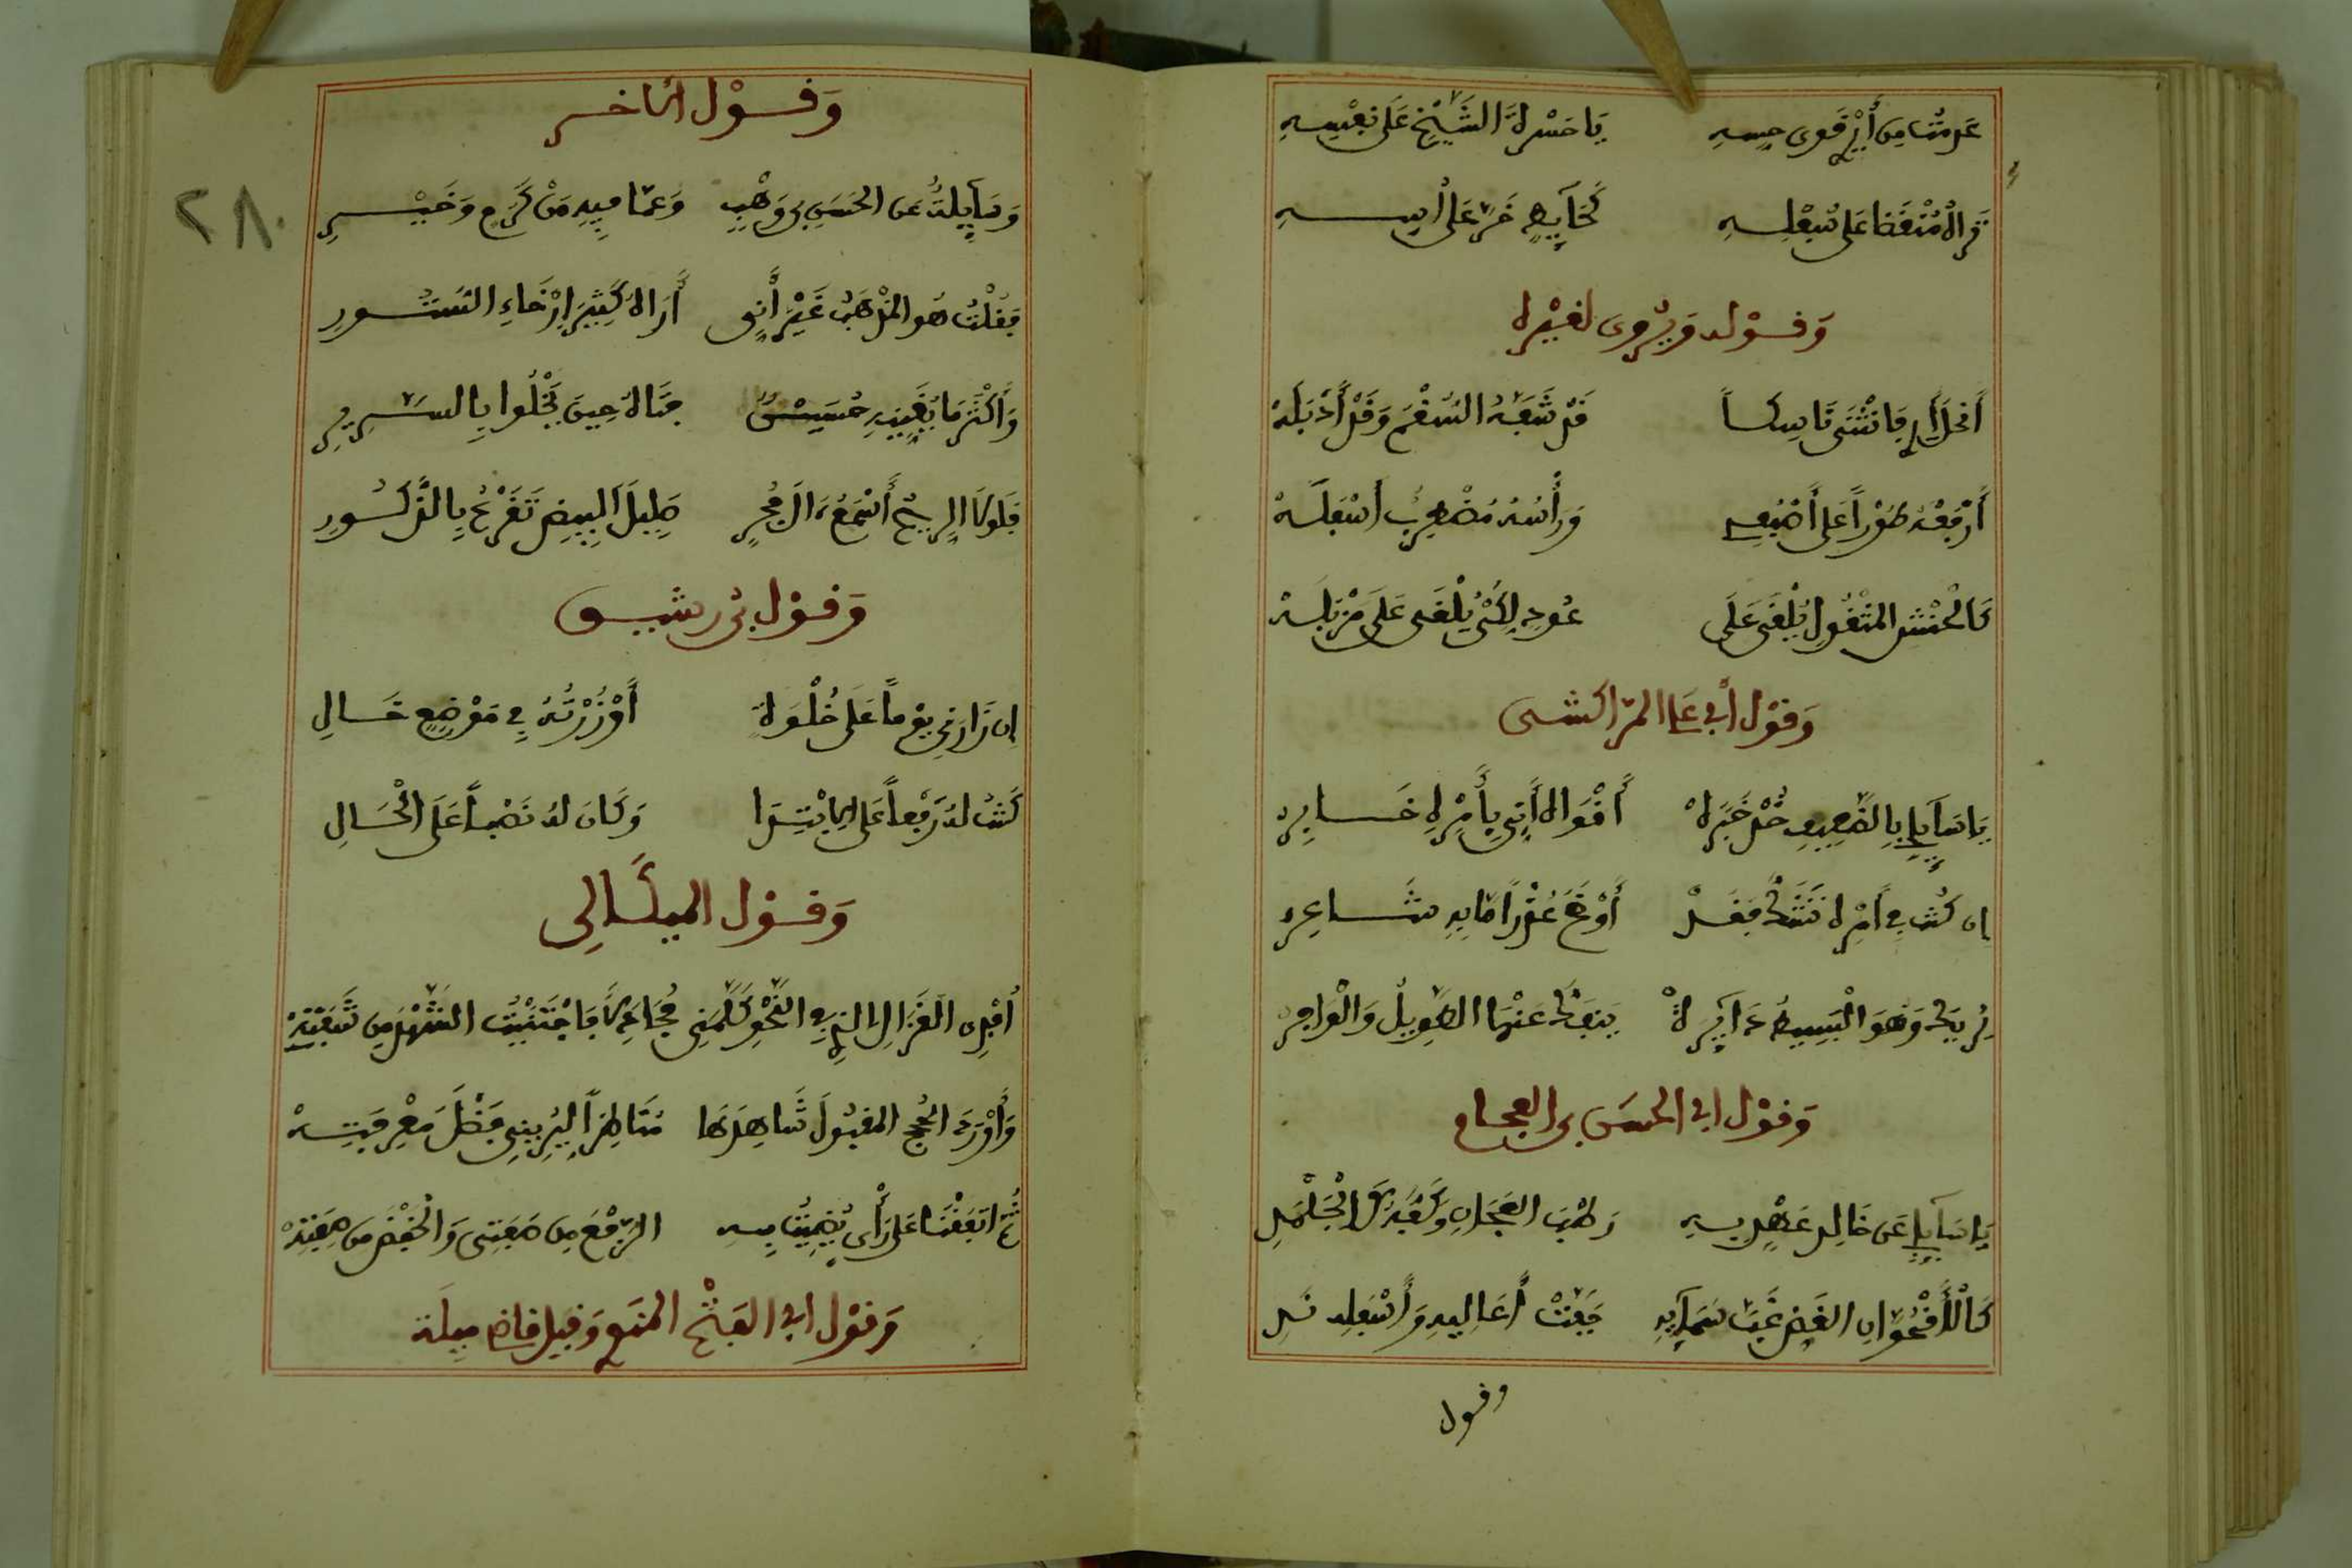 عدمت من أير قوى حسه يَا حَسْرَةَ الشَّيْخِ عَلَى نَفْسِهِ
تراه منقضا على سفله كَحَايِطٍ خَرَّ عَلَى أسه
وَقَوْله وَيُرْوى لغَيْره
أنحل فانثنى ناكسا قَدْ شَفَّهُ السُّقْمُ وَقَدْ أَذْبَلَهْ
أَرْفَعُهُ طَوْراً عَلَى أَضْلُعِي وَرَأْسُهُ مُضْطَرِبٌ أَسْفَلَهْ
كَالْحَنَشِ الْمَقْتُولِ يُلْقَى عَلَى عُودٍ لِكَيْ يُلْقَى عَلَى مَزْبَلَهْ
وَقَوْل أَبي علي المرّاكشي
يَا سَايِلِي بِالضَّعِيفِ خُذْ خَبَرَهْ أَفْوَاهُ أَنِّي بِأَمْرِهِ خَابِرْ
إن كُنْتَ فِي أَمْرِهِ تَشُكُّ فَقَدْ أَوْضَحَ عُذْراً مَّا بِهِ شَاعِرْ
يُرِيكَ وَهُوَ الْبَسِيطُ دَايِرَةً يَنْفَكُّ عَنْهَا الطَّوِيلُ وَالْوَافِرْ
وَقَوْل ابي الحسَن بن الفحام
يَا سَايِلِي عَن خَالِدٍ عَهْدِي بِهِ رَطْبَ الْعِجَانِ وَكَفُّهُ كَالْجَلْمَدِ
كَالْأُقْحُوَانِ الْغَضِّ غِبَّ سَمَايِهِ جَفَّتْ أَعَالِيهِ وَأَسْفَلُهُ نَدِ
وقول
وَقَوْل الآخر
وَسَايِلَةٌ عَنِ الْحَسَنِ بْنِ وَهْبٍ وَعَمَّا فِيهِ مِنْ كَرَمٍ وَخَيْرِ
فَقُلْتُ هُوَ الْمُهَذَّبُ غَيْرَ أَنِّي أَرَاهُ كَثِيرَ إِرْخَاءِ السُّتُورِ
وَأَكْثَرُ مَا يُغَنِّيهِ حُسَيْنٌ فَتَاهُ حِينَ يَخْلُوا بِالسَّرِيرِ
فَلَوْلَا الرِّيحُ أُسْمِعَ مَن بِحُجْرٍ صَلِيلَ الْبِيضِ تُقْرَعُ بِالذُّكُورِ
وَقَوْل بْن رشيق
إِن زَارَنِي يَوْماً عَلَى خُلْوَةٍ أَوْ زُرْتُهُ فِي مَوْضِعٍ خَالِ
كُنْتُ لَهُ رَفْعاً عَلَى الِابْتِدَا وَكَانَ لِي نَصْباً عَلَى الْحَالِ
وَقَوْل الميكَالِي
أُفْدِي الْغَزَالَ الَّذِي فِي النَّحْوِ كَلَّمَنِي مُجَادِلاً فَاجْتَنَيْتُ الشَّهْدَ مِن شَفَتِهْ
وَأَوْرَدَ الْحُجَجَ الْمَقْبُولَ شَاهِدُهَا مُنَاظِراً لِيُرِيَنِي فَضْلَ مَعْرِفَتِهْ
ثُمَّ اتَّفَقْنَا عَلَى رَأْيٍ رَضِيتُ بِهِ الرَّفْعُ مِن صِفَتِي وَالْخَفْضُ مِن صِفَتِهْ
وَقَوْل ابي الفَتْح المنيع وَقِيل قاضي ميلَة
٢٨٠